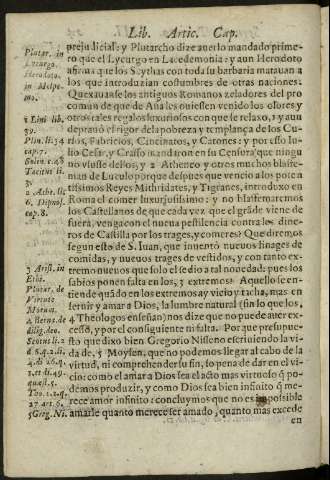 Lib. Artic. Cap.
prejudicial: y Plutarcho dize auerlo mandado prime-
ro que el Lycurgo en Lacedemonia: y aun Herodoto
afirma que los Scythas con toda su barbaria matauan a
los que introduzian costumbres de otras naciones.
Quexauanse los antiguos Romanos zeladores del pro
comun de que de Asia les ouiessen venido los olores y
otros tales regalos luxuriosos con que se relaxò, y aun
deprauò el rigor de la pobreza y templança de los Cu-
rios, Fabricios, Cincinatos, y Catones: y por esso Iu-
lio Cesar, y Crasso mandaron en su Censura que ningu
no vsasse dellos, y 2 Atheneo y otros muchos blasfe-
man de Luculo porque despues que vencio a los poten
tissimos Reyes Mithridates, y Tigranes, introduxo en
Roma el comer luxuriosissimo: y no blasfemaremos
los Castellanos de que cada vez que el grãde viene de
fuera, venga con el nueua pestilencia contra los dine-
ros de Castilla por los trages, y comeres? Que diremos
segun esto de S. Iuan, que inuentò nueuos linages de
comidas, y nueuos trages de vestidos, y con tanto ex-
tremo nueuos que solo el se dio a tal nouedad: pues los
sabios ponen falta en los, 3 extremos? Aquello se en-
tiende quãdo en los extremos ay vicio y tacha, mas en
seruir y amar a Dios, la lumbre natural (sin lo que los,
4 Theologos enseñan) nos dize que no puede auer ex-
cesso, y por el consiguiente ni falta. Por que presupue-
sto que dixo bien Gregorio Nisseno escriuiendo la vi-
da de, 5 Moysen, que no podemos llegar al cabo de la
virtud, ni comprehender su fin, so pena de dar en el vi-
cio: como el amar a Dios sea el acto mas virtuoso q̃ po-
demos produzir, y como Dios sea bien infinito q̃ me-
rece amor infinito: concluymos que no es impossible
amarle quanto merece ser amado, quanto mas excede
en
Plutar. in
Lycurgo.
Herodoto.
in Melpo-
me.
1 Liui lib.
39.
Plin. li. 34
cap. 7.
Solin. c. 48
Tacitus li.
3.
2 Athe. li.
6. Dipnos.
cap. 8.
3 Arist. in
Ethi.
Plutar. de
Virtute
Motum.
4 Berna. de
dilig. deo.
Scotus li. 2
d. 6. q. 2. li.
quæst. 5.
Tho. 1. 2. q.
27. art. 6.
5 Greg. Ni.